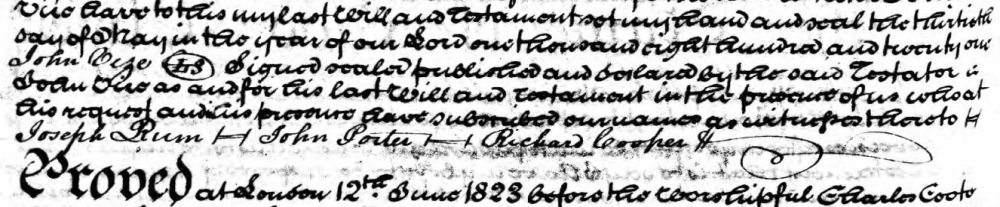 Vize have to this my last Will and Testament set my hand and seal the thirtieth
day of May in the year of our Lord one thousand eight hundred and twenty one
John Vize LS Signed sealed published and declared by the said Testator
John Vize as and for his last Will and Testament in the presence of us who at
his request and in his presence have subscribed our names as witnesses thereto
Joseph Rum John Porter Richard Cooper
Proved at London 12th June 1823 before the Worshipful Charles Coote